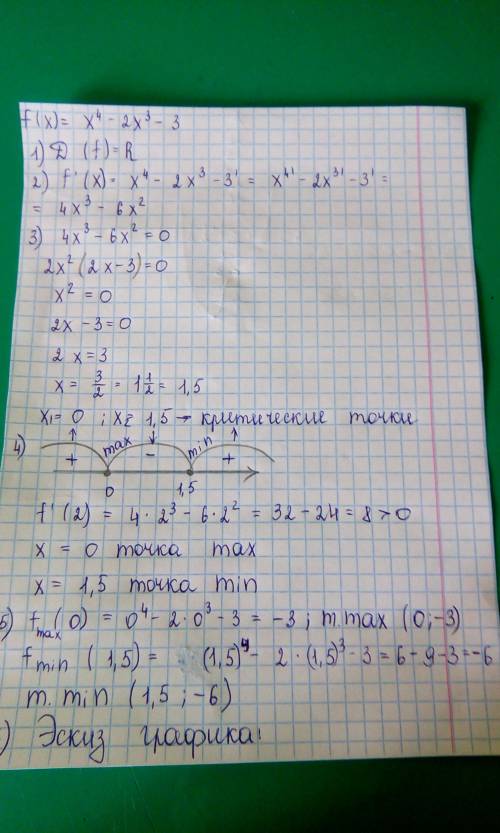 f(x) = x⁴ - 2x³ - 3
1) D (f) = R
2) f'(x) = x⁴ - 2x³ - 3' = x⁴' - 2x³' - 3' =
= 4x³ - 6x²
3) 4x³ - 6x² = 0
2x² (2x - 3) = 0
x² = 0
2x - 3 = 0
2x = 3
x = 3/2 = 1 1/2 = 1,5
x₁ = 0 ; x₂ = 1,5 → критические точки
4) + max - min +
0 1,5
f'(2) = 4·2³ - 6·2² = 32 - 24 = 8 > 0
x = 0 точка max
x = 1,5 точка min
5) fmax (0) = 0⁴ - 2·0³ - 3 = -3 ; т. max (0; -3)
fmin (1,5) = (1,5)⁴ - 2·(1,5)³ - 3 = 6 - 9 - 3 = -6
т. min (1,5 ; -6)
) Эскиз графика: